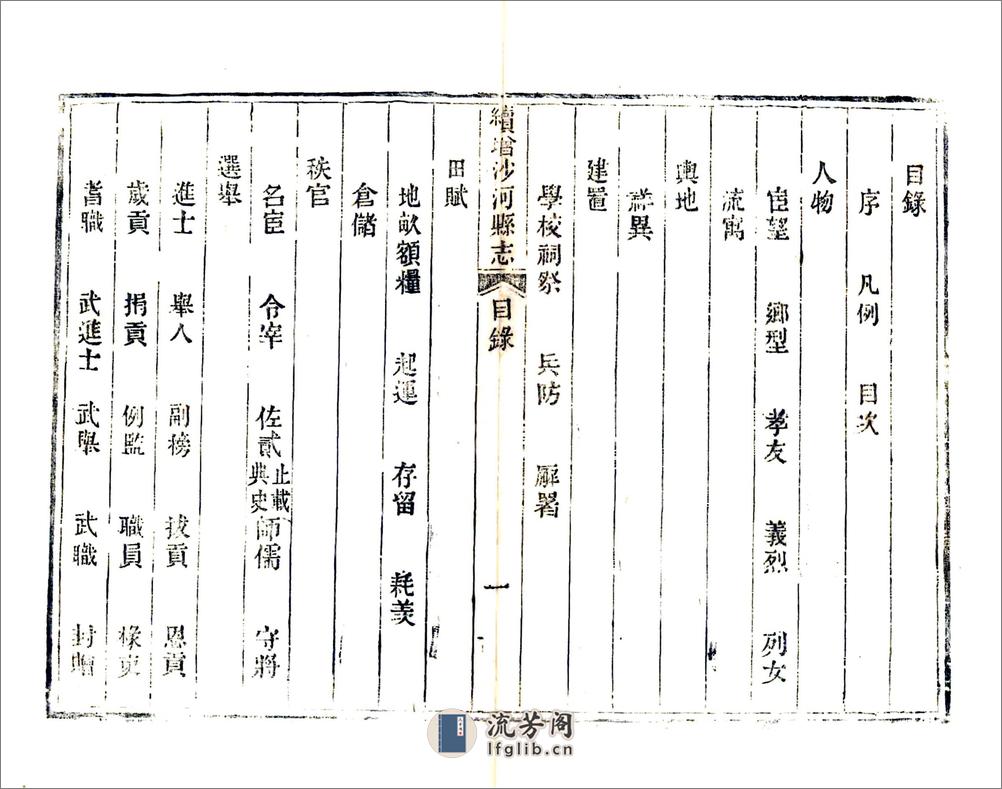 目錄
序 凡例 目次
人物
宦望 鄉型 孝友 義烈 列女
流寓
輿地
祥異
建置
學校祠祭 兵防 廨署
續增沙河縣志 目錄 一
田賦
地畝額糧 起運 存留 耗羨
倉儲
秩官
名宦 令宰 佐貳 止載典史 師儒 守將
選舉
進士 舉人 副榜 拔貢 恩貢
歲貢 捐貢 例監 職員 椽吏
耆職 武進士 武舉 武職 封贈
流芳阁
lfglib.cn